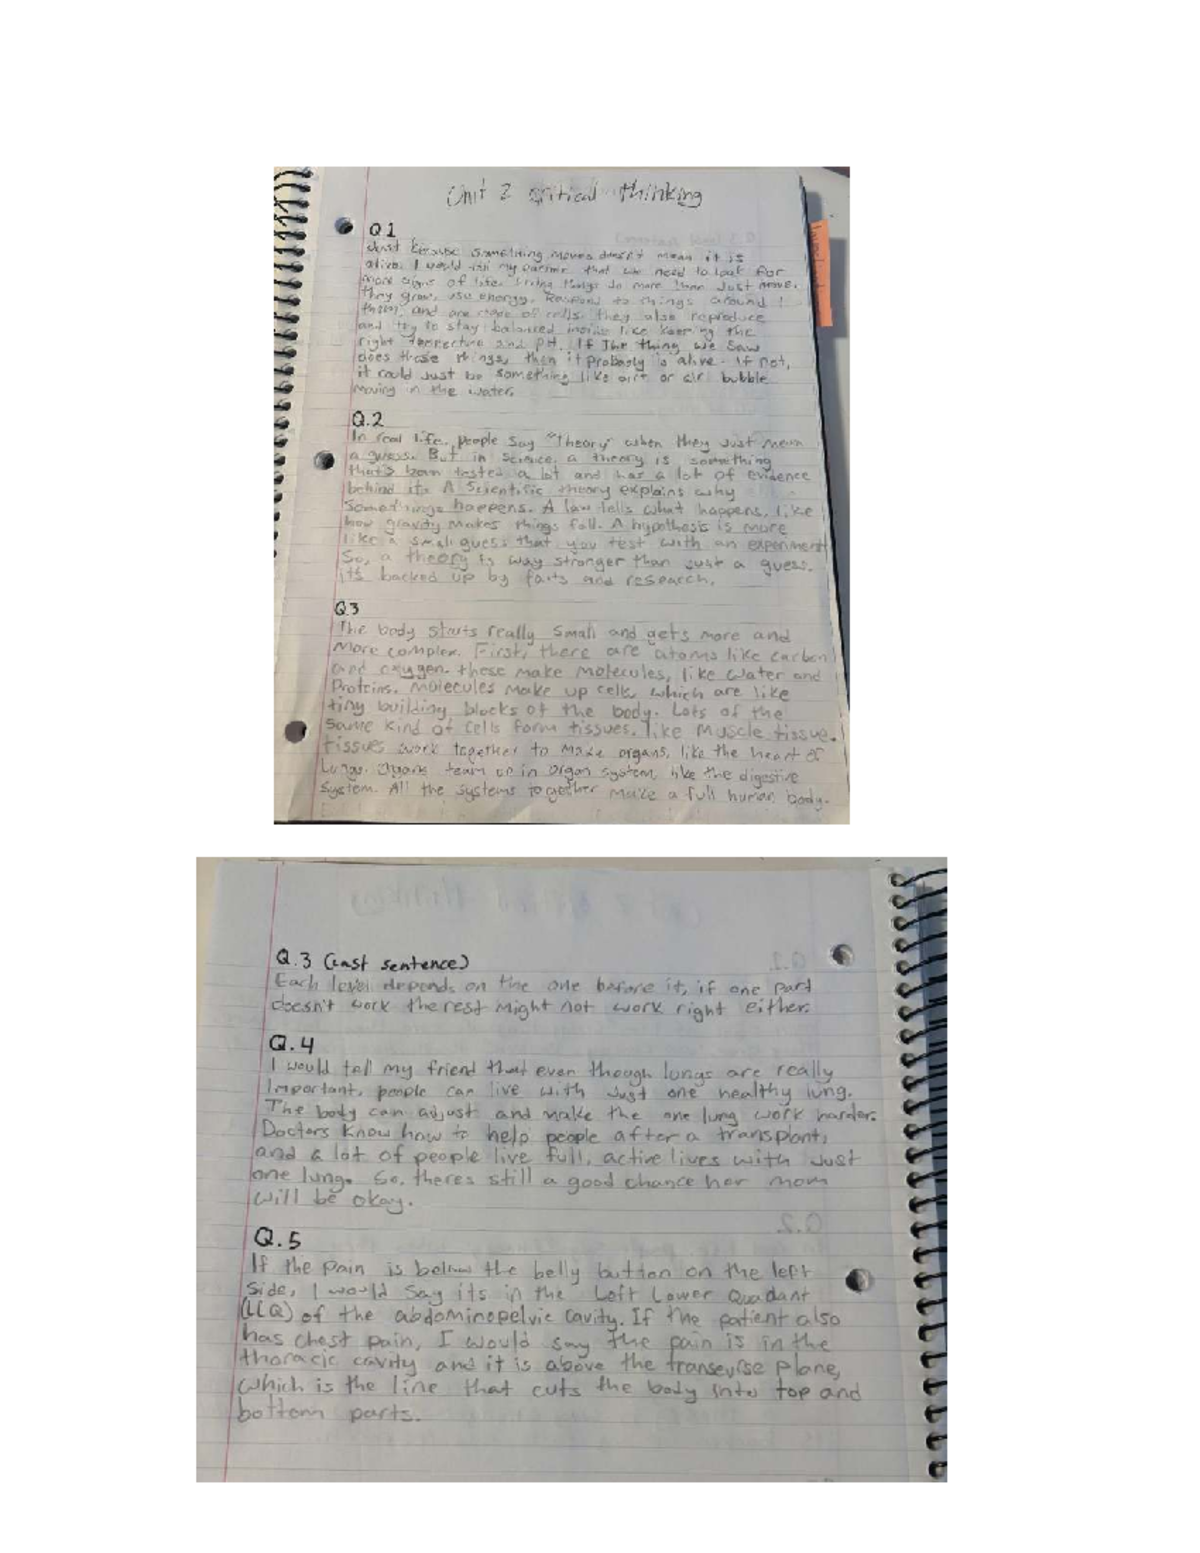 Unit 2 critical thinking
Q1
Just because something moves doesn't mean it is
alive. I would tell my partner that we need to look for
more signs of life. Living things do more than just move.
They grow, use energy, Respond to things around
them, and are made of cells. they also reproduce
and try to stay balanced inside like keeping the
right and pH. If the thing we saw
does these things, then it probably is alive. If not,
it could just be something like or air bubble
moving in the water.
Q.2
In real life, people say "theory" when they just mean
a guess. But in science, a theory is something
that's been tested a lot and has a lot of evidence
behind it. A Scientific theory explains why
something happens. A law tells what happens, like
how gravity makes things fall. A hypothesis is more
like a small guess that you test with an experiment
So, a theory is way stronger than just a guess.
it's backed up by facts and research.
Q3
The body starts really small and gets more and
more complex. First, there are atoms like carbon
and oxygen. these make molecules, like water and
Proteins. molecules make up cells, which are like
tiny building blocks of the body. Lots of the
same kind of cells form tissues, like muscle tissue.
tissues work together to make organs, like the heart or
Lungs. Organs team up in organ system, like the digestive
system. All the systems together make a full human body.
Q.3 (Last sentence)
Each level depends on the one before it, if one part
doesn't work the rest might not work right either.
Q.4
I would tell my friend that even though lungs are really
important, people can live with just one healthy lung.
The body can adjust and make the one lung work harder.
Doctors know how to help people after a transplant,
and a lot of people live full, active lives with just
one lung. So, theres still a good chance her mom
will be okay.
Q.5
If the pain is below the belly button on the left
side, I would say its in the Left Lower Quadant
(LLQ) of the abdominopelvic cavity. If the patient also
has chest pain, I would say the pain is in the
thoracic cavity and it is above the plane,
which is the line that cuts the body into top and
bottom parts.